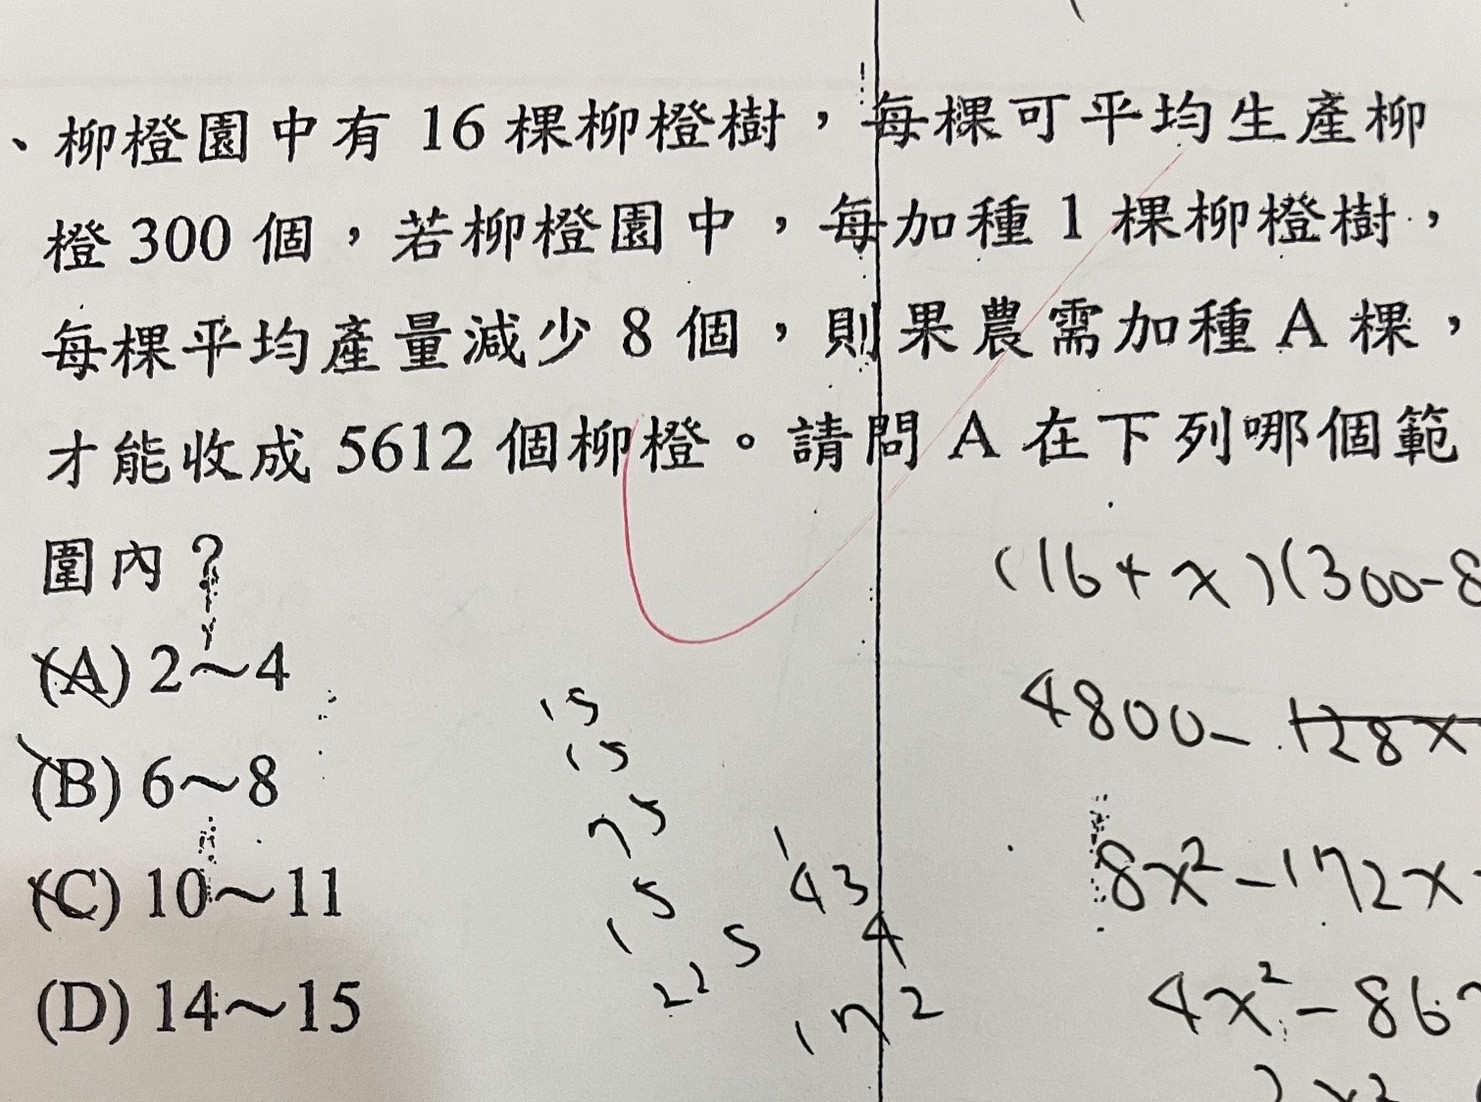 、柳橙園中有 16 棵柳橙樹，每棵可平均生產柳
橙 300 個，若柳橙園中，每加種 1 棵柳橙樹，
每棵平均產量減少 8 個，則果農需加種 A 棵，
才能收成 5612 個柳橙。請問 A 在下列哪個範
圍內？
(A) 2～4
(B) 6～8
(C) 10～11
(D) 14～15
(16+x)(300-8
4800- 128x
8x²-172x
4x²-86
15
15
75
15
225
43
4
172